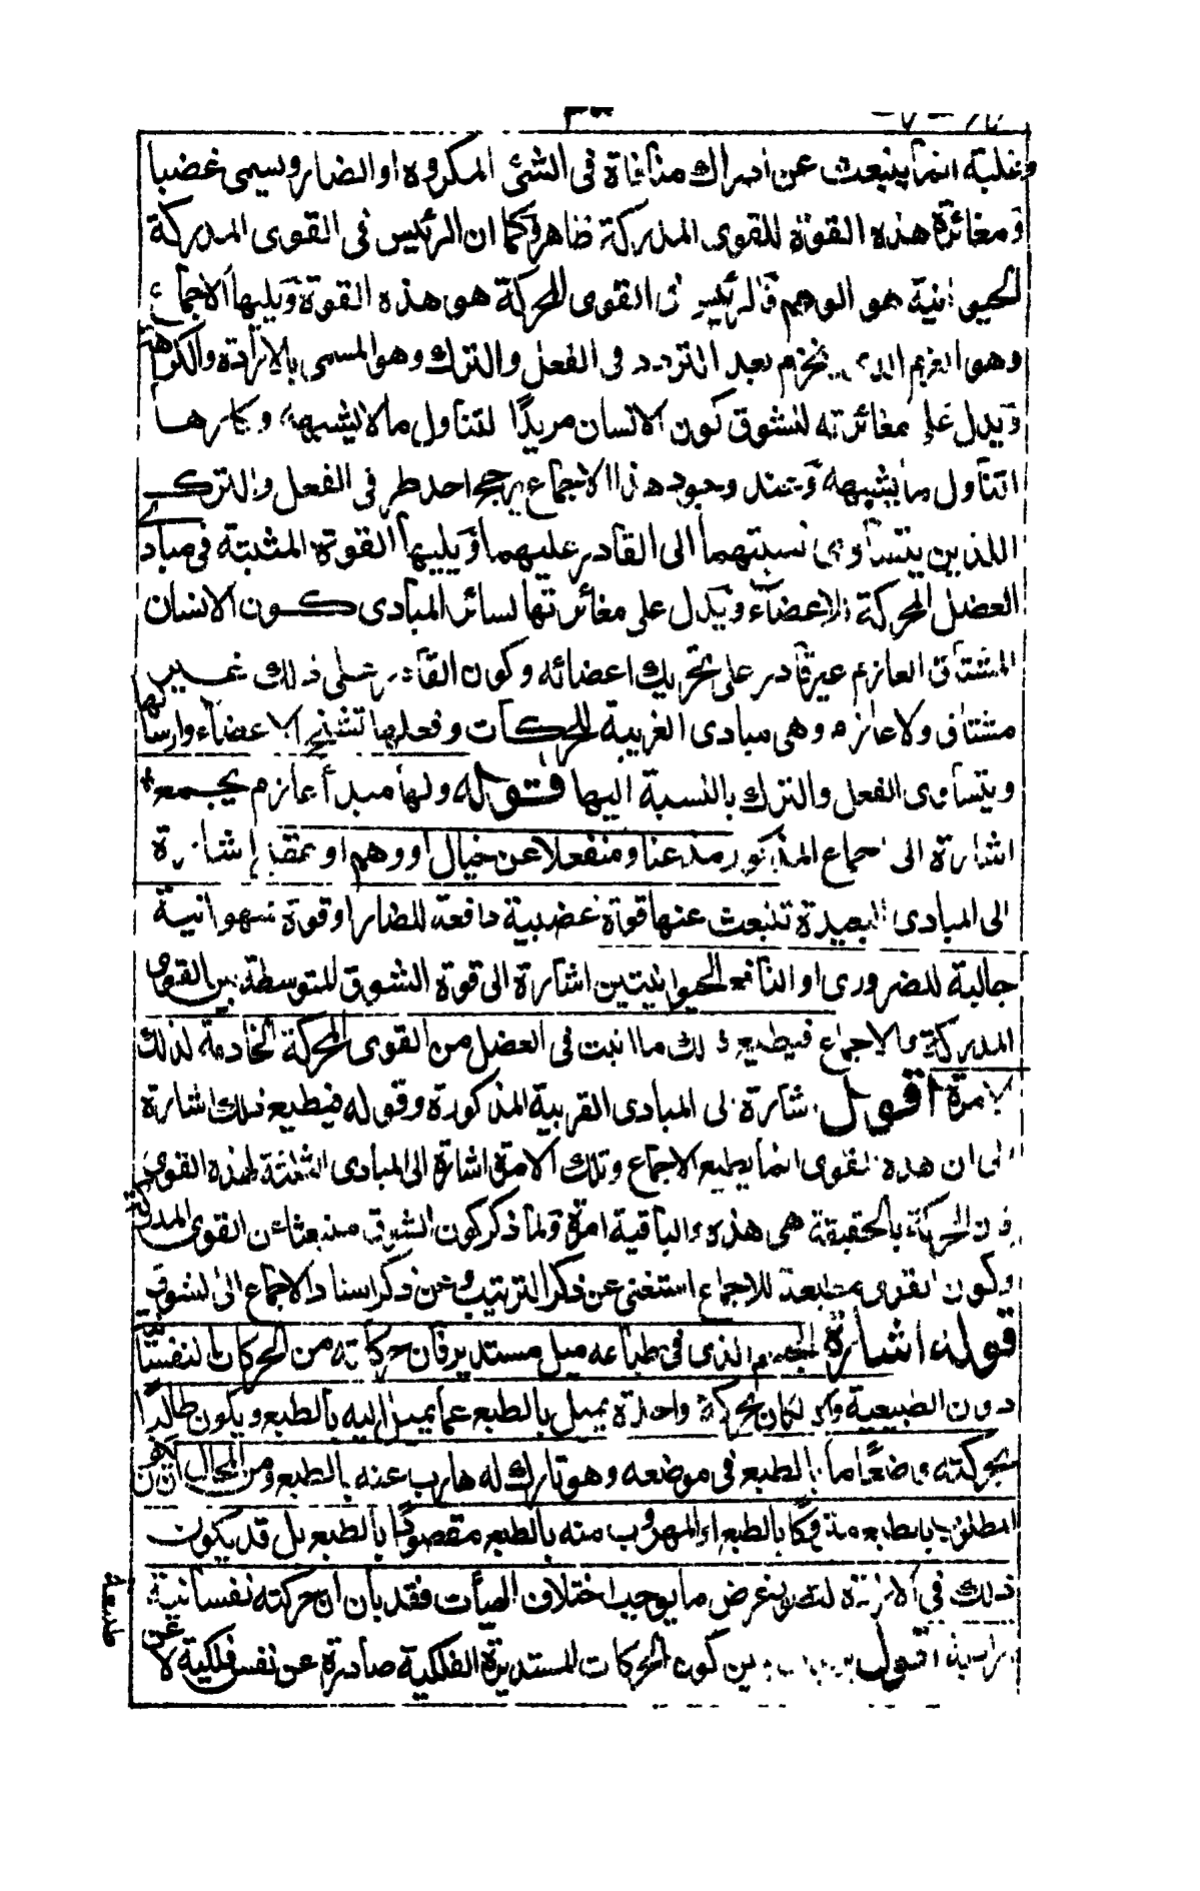 وغلبة انما ينبعث عن ادراك منافاة فى الشئ المكروه او الضار ويسمى غضبا
ومغائرة هذه القوة للقوى المدركة ظاهرة وكما ان الرئيس فى القوى المدركة
الحيوانية هو الوهم فالرئيس فى القوى المحركة هو هذه القوة ويليها الاجماع
وهو العزم الذى ينجزم بعد التردد فى الفعل والترك وهو المسمى بالارادة والكراهة
ويدل على مغائرته للشوق كون الانسان مريدا لتناول ما لا يشتهيه وكارها
لتناول ما يشتهيه وعند وجود هذا الاجماع يرجح احد طرفى الفعل والترك
اللذين يتساوى نسبتهما الى القادر عليهما ويليها القوة المثبتة فى مبادى
العضل المحركة للاعضاء ويدل على مغائرتها لسائر المبادى كون الانسان
المشتاق العازم غير قادر على تحريك اعضائه وكون القادر على ذلك غير
مشتاق ولا عازم وهى مبادى القريبة للحركات وفعلها تشنيج الاعضاء وارسالها
ويتساوى الفعل والترك بالنسبة اليها قوله ولها مبدأ عازم يجمع
اشارة الى اجماع المذكور مذعنا ومنفعلا عن خيال او وهم او عقل اشارة
الى المبادى البعيدة تنبعث عنها قوة غضبية دافعة للضار او قوة شهوانية
جالبة للضرورى او النافع الحيوانيتين اشارة الى قوة الشوق المتوسطة بين القوى
المدركة والاجماع فيطيع ذلك ما انبث فى العضل من القوى المحركة الخادمة لذلك
الامرة اقول اشارة الى المبادى القريبة المذكورة وقوله فيطيع ذلك اشارة
الى ان هذه القوى انما يطيع الاجماع وتلك الامرة اشارة الى المبادى الثلثة لهذه القوى
فان المحركة بالحقيقة هى هذه والباقية امرة ولما ذكر كون الشوق منبعثا عن القوى المدركة
وكون القوى مطابعة للاجماع استغنى عن ذكر الترتيب وعن ذكر اسناد الاجماع الى الشوق
قوله اشارة الجسم الذى فى طباعه ميل مستدير فان حركاته من الحركات النفسانية
دون الطبيعية والا لكان بحركة واحدة يميل بالطبع عما يميل اليه بالطبع ويكون طالبا
بحركته وضعا ما بالطبع فى موضعه وهو تارك له هارب عنه بالطبع ومن المحال ان يكون
المطلوب بالطبع متروكا بالطبع او المهروب منه بالطبع مقصودا بالطبع بل قد يكون
ذلك فى الارادة لتصور غرض ما يوجب اختلاف الهيأت فقد بان ان حركته نفسانية
ارادية اقول كون الحركات المستديرة الفلكية صادرة عن نفس فلكية لا عن
طبيعة